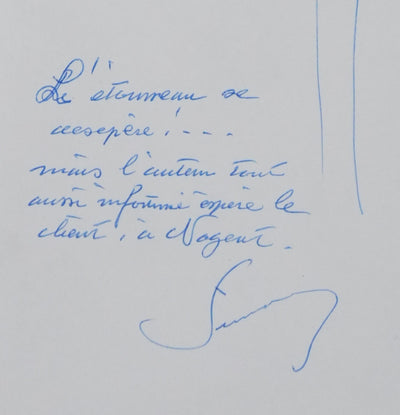 L'étourneau se
désespère! - - -
mais l'auteur tout
aussi informé espère le
client, à Nogent.